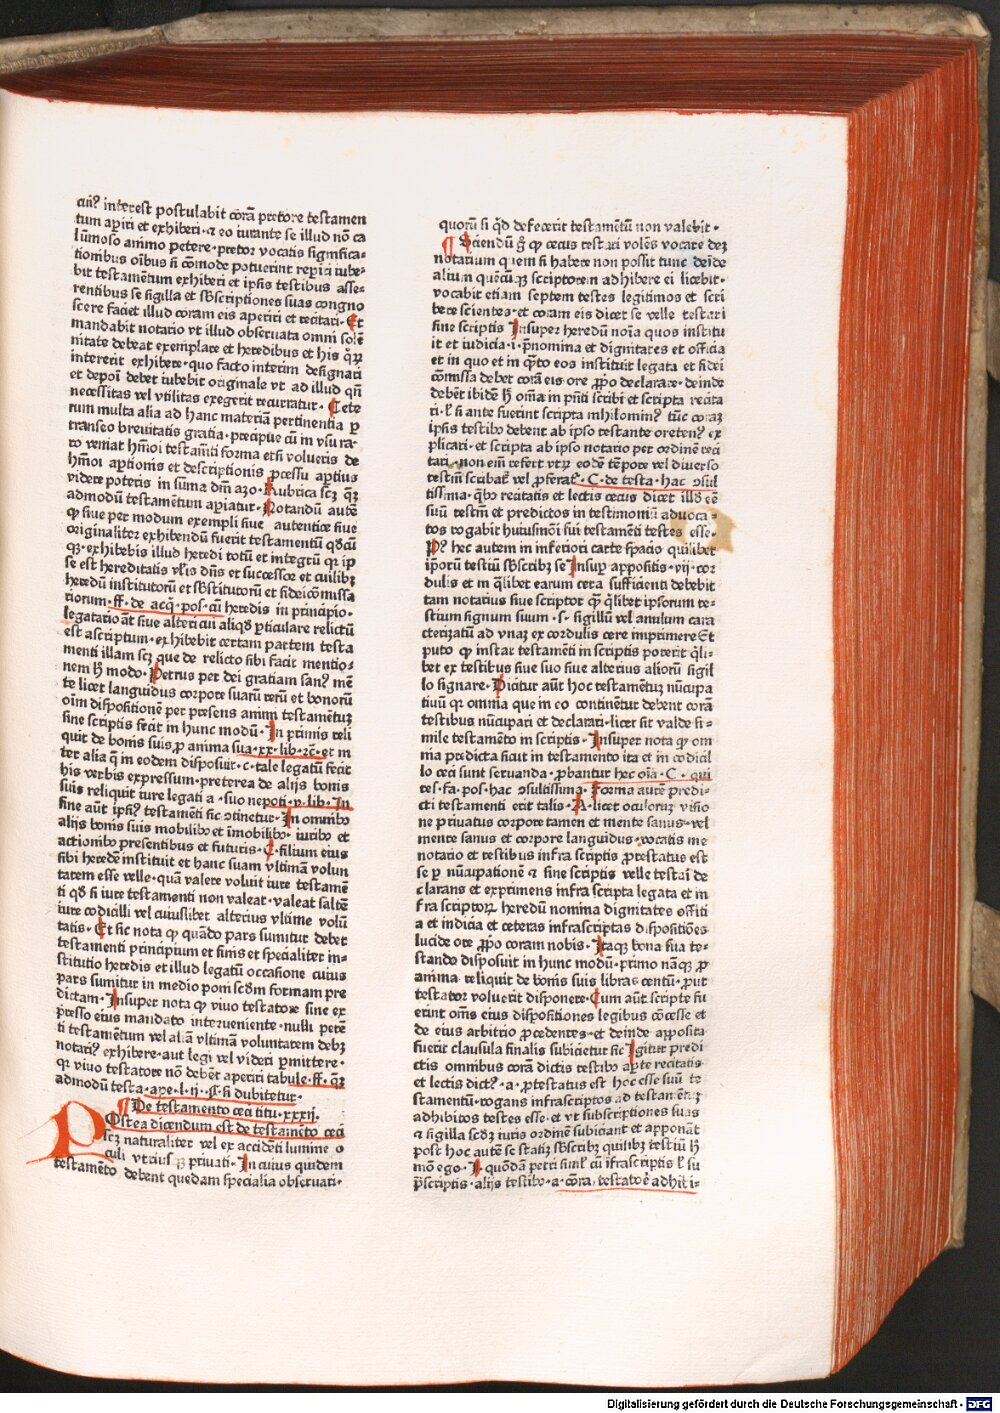 cuiꝰ interest postulabit corā pretore testamen
tum aꝑiri et exhiberi · ⁊ eo iurante se illud nō ca
lūmoso animo petere · pretor vocatis significa⸗
tionibus oībus si cōmode potuerint reꝑiri iube⸗
bit testamētum exhiberi et ipsis testibus asse⸗
rentibus se sigilla et sb̄scriptiones suas congno
scere faciet illud coram eis aperiri et recitari · Et
mandabit notario vt illud obseruata omni solē
nitate debeat exemplare et heredibus et his qꝝ
intererit exhibere · quo facto interim designari
et depōi debet iubebit originale vt ad illud qn̄
necessitas vel vtilitas exegerit recurratur · Cete
rum multa alia ad hanc materiā pertinentia ꝑ
transeo breuitatis gratia · precipue cū in vsu ra⸗
ro veniat hmōi testam̄ti forma etsi volueris de
hmōi aꝑtionis et descriptionis ꝓcessu aꝑtius
videre poteris in sūma dm̄ azo · Rubrica scꝫ qꝫ
admodū testamētum aꝑiatur · Notandū autē
ꝙ siue per modum exempli siue autentice siue
originaliter exhibendū fuerit testamentū qd̄cū
qꝫ · exhibebis illud heredi totū et integrū qꝛ ip
se est hereditatis vl̄is dn̄s et successor et cuilibꝫ
heredū institutorū et sb̄stitutorū et fideicōmissa
riorum · ff · de acq̄ · pos · cū heredis in principio ·
legatario āt siue alteri cui aliqd̄ ꝑticulare relictū
est ascriptum · exhibebit certam partem testa
menti illam scꝫ que de relicto sibi facit mentio⸗
nem h̄ modo · Petrus per dei gratiam sanꝰ mē
te licet languidus corpore suarū rerū et bonorū
oīm dispositionē per presens animi testamētuꝫ
sine scriptis fecit in hunc modū · In primis reli
quit de bonis suis ꝓ anima sua · xx · lib · ⁊c̄ · et in
ter alia q̄ in eodem disposuit · c · tale legatū fecit
his verbis expressum · preterea de alijs bonis
suis reliquit iure legati a · suo nepoti · v · lib · In
fine aūt ipsiꝰ testamēti sic ↄtinetur · In omnibꝰ
alijs bonis suis mobilibꝰ et īmobilibꝰ · iuribꝰ et
actionibꝰ presentibus et futuris · C · filium eius
sibi heredē instituit et hanc suam vltimā volun
tatem esse velle · quā valere voluit iure testamē
ti qd̄ si iure testamenti non valeat · valeat saltē
iure codicilli vel cuiuslibet alterius vltime volū
tatis · Et sic nota ꝙ quādo pars sumitur debet
testamenti principium et finis et specialiter in⸗
stitutio heredis et illud legatū occasione cuius
pars sumitur in medio poni scd̄m formam pre
dictam · Insuper nota ꝙ viuo testatore sine ex
presso eius mandato interueniente · nulli petē
ti testamētum vel aliā vltimā voluntatem debꝫ
notariꝰ exhibere · aut legi vel videri ꝑmittere ·
qꝛ viuo testatore nō debēt aperiri tabule · ff · qꝫ
admodū testa · ape · l · ij · §· si dubitetur ·
¶ De testamento ceci titu · xxxij ·
POstea dicendum est de testamēto ceci
scꝫ naturaliter vel ex accidēti lumine o
culi vtriusqꝫ priuati · In cuius quidem
testamēto debent quedam specialia obseruari ·
quorū si qd̄ defecerit testamētū non valebit ·
¶ Sciendū g̊ ꝙ cecus testari volēs vocare deꝫ
notarium quem si habere non possit tunc deīde
alium quēcūqꝫ scriptorem adhibere ei licebit ·
vocabit etiam septem testes legitimos et scri
bere scientes · et coram eis dicet se velle testari
sine scriptis Insuper heredū noīa quos institu
it et iudicia · i · p̄nomina et dignitates et officia
et in quo et in qn̄to eos instituit legata et fidei
cōmissa debet corā eis ore ꝓprio declarare · deinde
debēt ibidē h̄ om̄ia in pn̄ti scribi et scripta recita
ri · l̄ si ante fuerint scripta nihilominꝰ tūc coraꝫ
ipsis testibꝰ debent ab ipso testante oretenꝰ ex
plicari · et scripta ab ipso notario per ordinē reci
tari · non em̄ refert vtꝝ eodē tēpore vel diuerso
testm̄ scribatʳ vel ꝓferatʳ · C · de testa · hac ↄsul
tissima · qbꝰ recitatis et lectis cecus dicet illd̄ eē
suū testm̄ et predictos in testimoniū aduoca⸗
tos rogabit huiusmōi sui testamēti testes esse ·
Pꝰ hec autem in inferiori carte spacio quilibet
ip̄orū testiū sb̄scribꝫ se Insuꝑ appositis · vij · cor
dulis et in qlibet earum cera sufficienti debebit
tam notarius siue scriptor qꝫ qlibet ipsorum te⸗
stium signum suum · s · sigillū vel anulum cara
cterizatū ad vnaꝫ ex cordulis cere imprimere Et
puto ꝙ instar testamēti in scriptis poterit qli⸗
bet ex testibus siue suo siue alterius aliorū sigil
lo signare · Dicitur aūt hoc testamētuꝫ nūcupa
tiuū qꝛ omnia que in eo continētur debent corā
testibus nūcupari et declarari · licet sit valde si⸗
mile testamēto in scriptis · Insuper nota ꝙ om
nia predicta sicut in testamento ita et in codicil
lo ceci sunt seruanda · ꝓbantur hec oīa · C · qui
tes · fa · pos · hac ↄsultissima · Forma autē predi⸗
cti testamenti erit talis · A · licet oculorꝫ visio
ne priuatus corpore tamen et mente sanus · vel
mente sanus et corpore languidus · vocatis me
notario et testibus infra scriptis ꝓtestatus est
se ꝑ nūcupationē ⁊ sine scriptis velle testari de
clarans et exprimens infra scripta legata et in
fra scriptorꝝ heredū nomina dignitates offiti
a et indicia et ceteras infrascriptas dispositiōes
lucide ore ꝓprio coram nobis · Itaqꝫ bona sua te⸗
stando disposuit in hunc modū · primo nāqꝫ ꝓ
anima reliquit de bonis suis libras centū · put
testator voluerit disponere · Cum aūt scripte fu
erint om̄s eius dispositiones legibus cōcesse et
de eius arbitrio ꝓcedentes · et deinde apposita
fuerit clausula finalis subicietur sic Igitur predi
ctis omnibus corā dictis testibꝰ aꝑte recitatis
et lectis dictꝰ · a · ꝓtestatus est hoc esse suū te
stamentū · rogans inscriptos ad testamētuꝫ
adhibitos testes esse · et vt subscriptiones suas
⁊ sigilla scd̄ꝫ iuris ordinē subiciant et apponāt
post hoc autē se statiꝫ sb̄scribꝫ quilibꝫ testiū h̄
mō · ego · I · quōdā petri simĺ cū īfrascriptis l̄ su
p̄scriptis · alijs testibꝰ · a · corā testatoē adhiti⸗
Digitalisierung gefördert durch die Deutsche Forschungsgemeinschaft - DFG